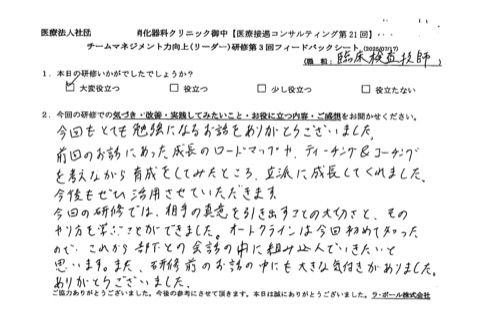 医療法人社団 消化器科クリニック御中【医療接遇コンサルティング第21回】
チームマネジメント力向上(リーダー)研修第3回フィードバックシート (2025/07/17)
(職種: 臨床検査技師)
1.本日の研修いかがでしたでしょうか?
☑大変役立つ □役立つ □少し役立つ □役立たない
2.今回の研修での気づき・改善・実践してみたいこと・お役に立つ内容・ご感想をお聞かせください。
今回もとても勉強になるお話をありがとうございました。
前回のお話にあった成長のロードマップや、ティーチング&コーチング
を考えながら育成をしてみたところ、立派に成長してくれました。
今後もぜひ活用させていただきます
今回の研修では、相手の真意を引き出すことの大切さと、その
やり方を学ぶことができました。オートクラインは今回初めて知った
ので、これから部下との会話の中に組み込んでいきたいと
思います。また、研修前のお話の中にも大きな気付きがありました。
ありがとうございました。
ご協力ありがとうございました。今後の参考にさせて頂きます。本日は誠にありがとうございました。ラ・ポール株式会社